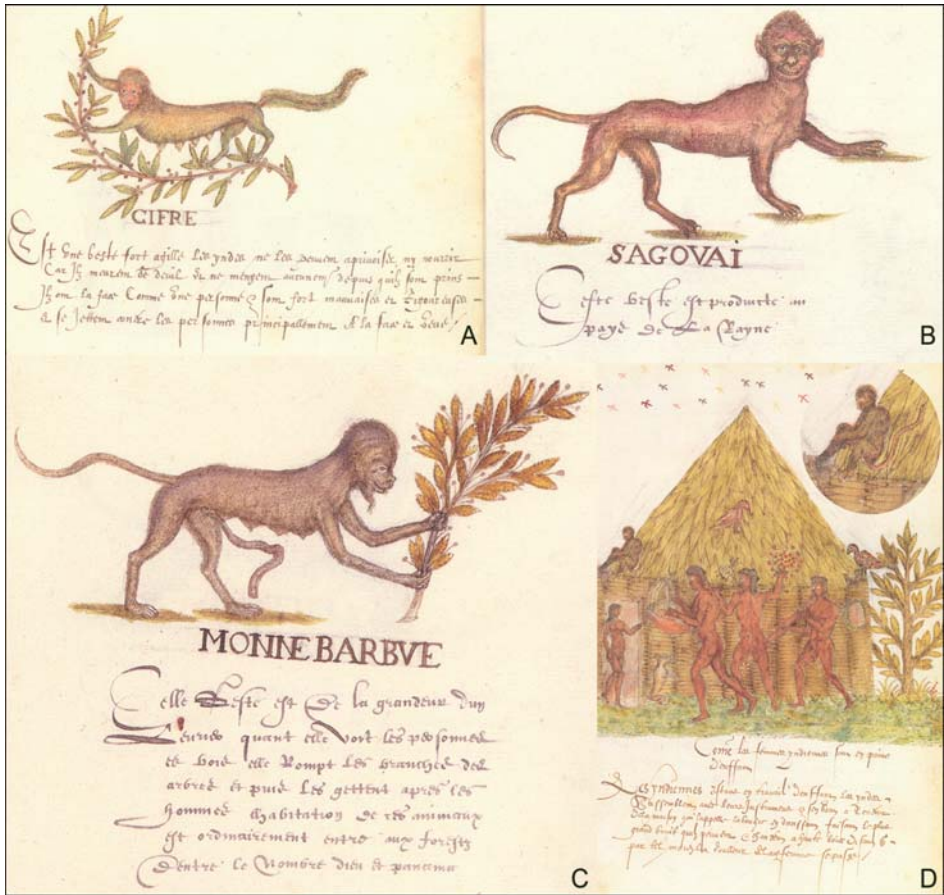 CIFRE
Est vne beste fort agille les yndes ne les peuvent aprivoiser ny nourir
Car Ilz meurent de deuil et ne mengent aucunement depuis quilz sont prins
Ilz ont la face Comme vne personne et sont fort mauvaises et
et se Jettent les personnes principallement A la face et veue
A
SAGOVAI
Ceste beste est producte au
pays de La Rayne
B
MONNE BARBVE
Celle Beste est de la grandeur dun
Leurier quant elle Voit les personnes
es bois elle Rompt les branches des
arbres et puis les gettent apres les
hommes Lhabitation de ces animaux
est ordinairement entre aux forestz
Dentre le Nombre dieu et panama
C
Come les femmes yndiennes sont en
denffan
en travail denffan les yndes
avec leurs Instrumens
et danssent
D